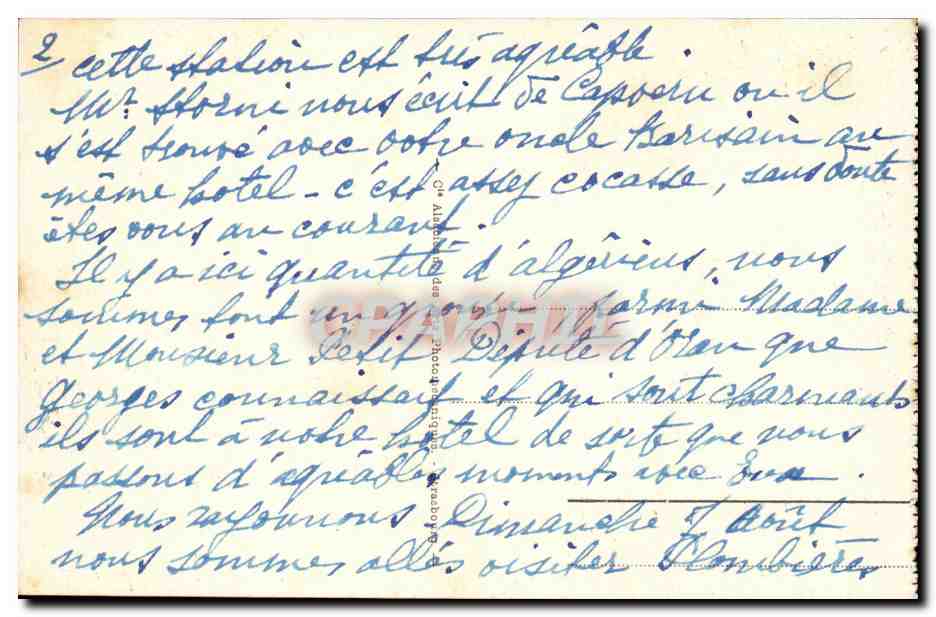 2/ cette station est très agréable.
Mr. Storni nous écrit de Capvern où il
s'est trouvé avec votre oncle Parisain au
même hotel - c'est assez cocasse, sans doute
êtes vous au courant.
Il y a ici quantité d'algériens, nous
sommes tout un groupe parmi Madame
et Monsieur Petit Député d'Oran que
Georges connaissait et qui sont charmants
ils sont à notre hotel de sorte que nous
passons d'agréables moments avec Eux.
Nous rayonnons Dimanche 7 Août
nous sommes allés visiter Plombières
Cie des Photomécaniques - Strasbourg